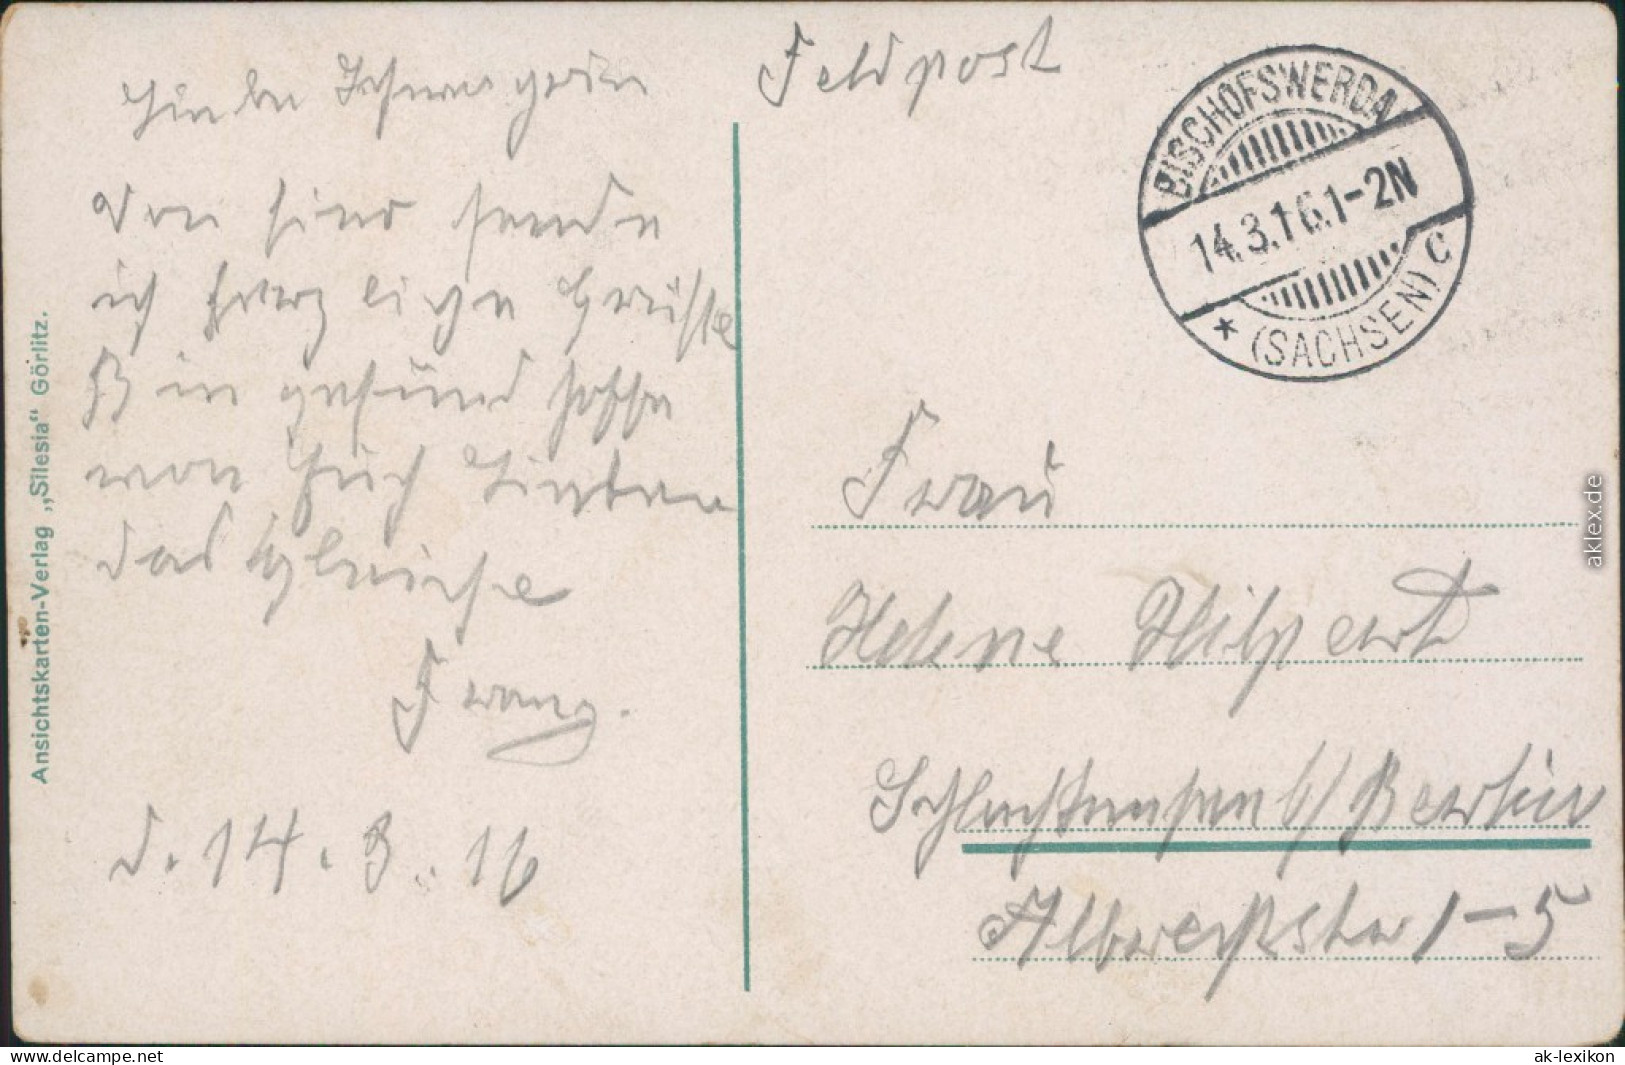 Feldpost
BISCHOFSWERDA
14.3.16.1-2N
* (SACHSEN) C
Liebe Schwägerin
Von hier sende
ich herzliche Grüße
Bin gesund hoffe
von Euch Lieben
das gleiche
Franz.
d. 14. 3. 16
Frau
Helene Hilpert
b/Berlin
1-5
Ansichtskarten-Verlag „Silesia“ Görlitz.
aklex.de
www.ansichtskarten-lexikon.de
ak-lexikon